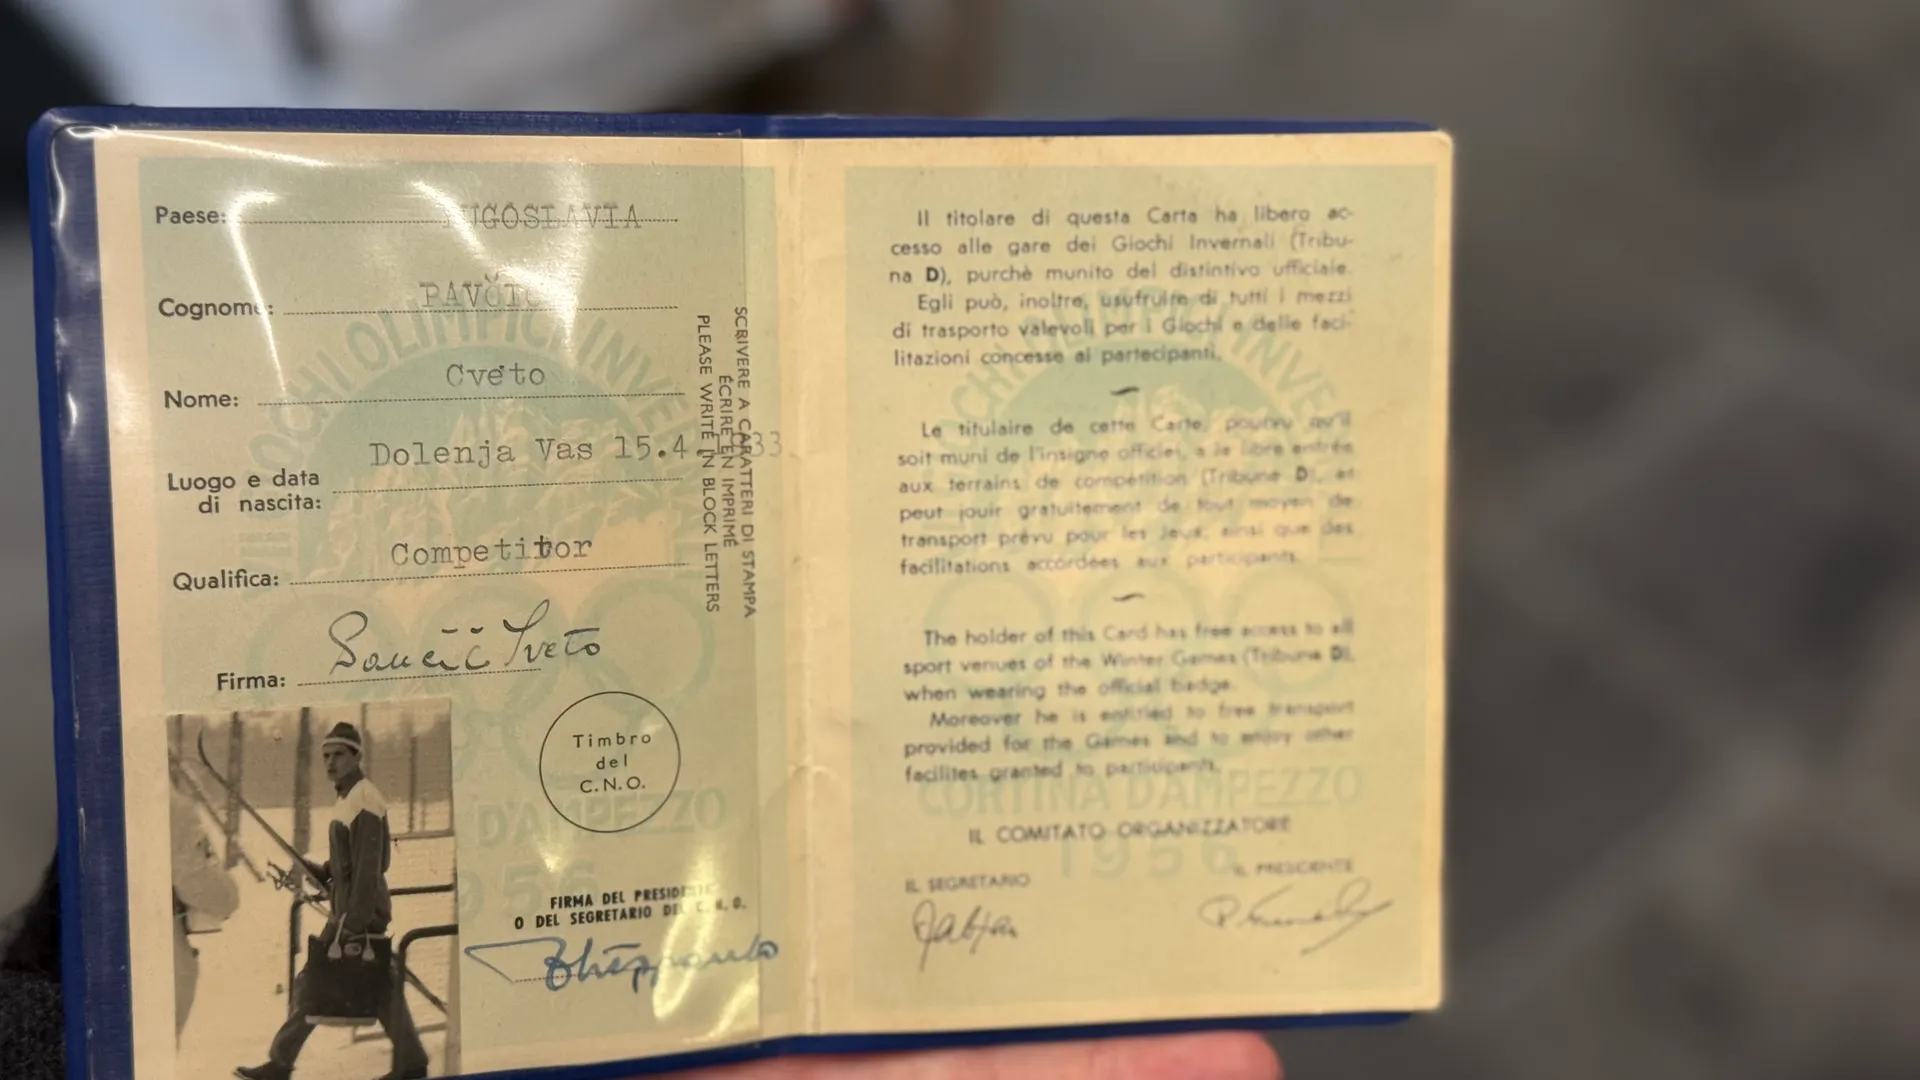 Paese: YUGOSLAVIA
Cognome: PAVČIČ
Nome: Cveto
Luogo e data di nascita: Dolenja Vas 15.4.1933
Qualifica: Competitor
Firma: Pavčič Cveto
SCRIVERE A CARATTERI DI STAMPA
ÉCRIRE EN IMPRIMÉ
PLEASE WRITE IN BLOCK LETTERS
Timbro
del
C.N.O.
FIRMA DEL PRESIDENTE
O DEL SEGRETARIO DEL C.N.O.
GIOCHI OLIMPICI INVERNALI
D'AMPEZZO
1956
Il titolare di questa Carta ha libero ac-
cesso alle gare dei Giochi Invernali (Tribu-
na D), purchè munito del distintivo ufficiale.
Egli può, inoltre, usufruire di tutti i mezzi
di trasporto valevoli per i Giochi e delle faci-
litazioni concesse ai partecipanti.
Le titulaire de cette Carte, pourvu qu'il
soit muni de l'insigne officiel, a le libre entrée
aux terrains de compétition (Tribune D), et
peut jouir gratuitement de tout moyen de
transport prévu pour les Jeux, ainsi que des
facilitations accordées aux participants.
The holder of this Card has free access to all
sport venues of the Winter Games (Tribune D),
when wearing the official badge.
Moreover he is entitled to free transport
provided for the Games and to enjoy other
facilites granted to participants.
CORTINA D'AMPEZZO
1956
IL COMITATO ORGANIZZATORE
IL SEGRETARIO
IL PRESIDENTE